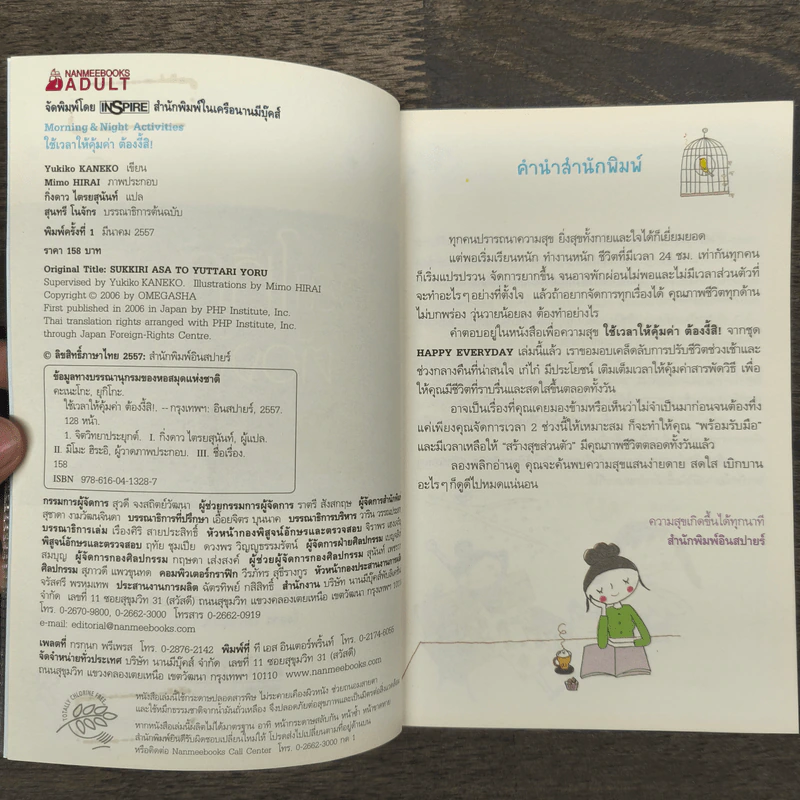 NANMEEBOOKS
ADULT
จัดพิมพ์โดย INSPIRE สำนักพิมพ์ในเครือนานมีบุ๊คส์
Morning & Night Activities
ใช้เวลาให้คุ้มค่า ต้องงี้สิ!
Yukiko KANEKO เขียน
Mimo HIRAI ภาพประกอบ
กิ่งดาว ไตรยสุนันท์ แปล
สุนทรี โนจักร บรรณาธิการต้นฉบับ
พิมพ์ครั้งที่ 1 มีนาคม 2557
ราคา 158 บาท
Original Title: SUKKIRI ASA TO YUTTARI YORU
Supervised by Yukiko KANEKO. Illustrations by Mimo HIRAI
Copyright © 2006 by OMEGASHA
First published in 2006 in Japan by PHP Institute, Inc.
Thai translation rights arranged with PHP Institute, Inc.
through Japan Foreign-Rights Centre.
© ลิขสิทธิ์ภาษาไทย 2557: สำนักพิมพ์อินสปายร์
ข้อมูลทางบรรณานุกรมของหอสมุดแห่งชาติ
คะเนะโกะ, ยูกิโกะ.
ใช้เวลาให้คุ้มค่า ต้องงี้สิ!. -- กรุงเทพฯ: อินสปายร์, 2557.
128 หน้า.
1. จิตวิทยาประยุกต์. I. กิ่งดาว ไตรยสุนันท์, ผู้แปล.
II. มิโมะ ฮิระอิ, ผู้วาดภาพประกอบ. III. ชื่อเรื่อง.
158
ISBN 978-616-04-1328-7
กรรมการผู้จัดการ สุวดี จงสถิตย์วัฒนา ผู้ช่วยกรรมการผู้จัดการ ราตรี สังสกฤษ ผู้จัดการสำนักพิมพ์
สุชาดา งามวัฒนจินดา บรรณาธิการที่ปรึกษา เอื้อยจิตร บุนนาค บรรณาธิการบริหาร
บรรณาธิการเล่ม เรืองศิริ สายประสิทธิ์ หัวหน้ากองพิสูจน์อักษรและตรวจสอบ
พิสูจน์อักษรและตรวจสอบ ฤทัย ชุมเปีย ดวงพร วิญญูธรรมรัตน์ ผู้จัดการฝ่ายศิลปกรรม
สมบุญ ผู้จัดการกองศิลปกรรม กฤษดา เส่งสงค์ ผู้ช่วยผู้จัดการกองศิลปกรรม
ศิลปกรรม สุภาวดี แพวขุนทด คอมพิวเตอร์กราฟิก วีรภัทร สุธีรางกูร หัวหน้ากองประสานงานการผลิต
จรัสศรี พรหมเทพ ประสานงานการผลิต ฉัตรทิพย์ กสิสิทธิ์ สำนักงาน บริษัท นานมีบุ๊คส์
จำกัด เลขที่ 11 ซอยสุขุมวิท 31 (สวัสดี) ถนนสุขุมวิท แขวงคลองเตยเหนือ เขตวัฒนา กรุงเทพฯ
โทร. 0-2670-9800, 0-2662-3000 โทรสาร 0-2662-0919
e-mail: editorial@nanmeebooks.com
เพลตที่ กรกนก พรีเพรส โทร. 0-2876-2142 พิมพ์ที่ ที เอส อินเตอร์พริ้นท์ โทร. 0-2174-6055
จัดจำหน่ายทั่วประเทศ บริษัท นานมีบุ๊คส์ จำกัด เลขที่ 11 ซอยสุขุมวิท 31 (สวัสดี)
ถนนสุขุมวิท แขวงคลองเตยเหนือ เขตวัฒนา กรุงเทพฯ 10110 www.nanmeebooks.com
TOTALLY CHLORINE FREE
หนังสือเล่มนี้ใช้กระดาษปลอดสารพิษ ไม่ระคายเคืองผิวหนัง ช่วยถนอมสายตา
และใช้หมึกธรรมชาติจากน้ำมันถั่วเหลือง จึงปลอดภัยต่อสุขภาพและเป็นมิตรต่อสิ่งแวดล้อม
หากหนังสือเล่มนี้ผลิตไม่ได้มาตรฐาน อาทิ หน้ากระดาษสลับกัน หน้าซ้ำ หน้าขาดหาย
สำนักพิมพ์ยินดีรับผิดชอบเปลี่ยนใหม่ให้ โปรดส่งไปเปลี่ยนตามที่อยู่ด้านบน
หรือติดต่อ Nanmeebooks Call Center โทร. 0-2662-3000 กด 1
คำนำสำนักพิมพ์
ทุกคนปรารถนาความสุข ยิ่งสุขทั้งกายและใจได้ก็เยี่ยมยอด
แต่พอเริ่มเรียนหนัก ทำงานหนัก ชีวิตที่มีเวลา 24 ชม. เท่ากันทุกคน
ก็เริ่มแปรปรวน จัดการยากขึ้น จนอาจพักผ่อนไม่พอและไม่มีเวลาส่วนตัวที่
จะทำอะไรๆ อย่างที่ตั้งใจ แล้วถ้าอยากจัดการทุกเรื่องได้ คุณภาพชีวิตทุกด้าน
ไม่บกพร่อง วุ่นวายน้อยลง ต้องทำอย่างไร
คำตอบอยู่ในหนังสือเพื่อความสุข ใช้เวลาให้คุ้มค่า ต้องงี้สิ! จากชุด
HAPPY EVERYDAY เล่มนี้แล้ว เราขอมอบเคล็ดลับการปรับชีวิตช่วงเช้าและ
ช่วงกลางคืนที่น่าสนใจ เก๋ไก๋ มีประโยชน์ เติมเต็มเวลาให้คุ้มค่าสารพัดวิธี เพื่อ
ให้คุณมีชีวิตที่ราบรื่นและสดใสขึ้นตลอดทั้งวัน
อาจเป็นเรื่องที่คุณเคยมองข้ามหรือเห็นว่าไม่จำเป็นมาก่อนจนต้องทึ่ง
แค่เพียงคุณจัดการเวลา 2 ช่วงนี้ให้เหมาะสม ก็จะทำให้คุณ “พร้อมรับมือ”
และมีเวลาเหลือให้ “สร้างสุขส่วนตัว” มีคุณภาพชีวิตตลอดทั้งวันแล้ว
ลองพลิกอ่านดู คุณจะค้นพบความสุขแสนง่ายดาย สดใส เบิกบาน
อะไรๆ ก็ดูดีไปหมดแน่นอน
ความสุขเกิดขึ้นได้ทุกนาที
สำนักพิมพ์อินสปายร์